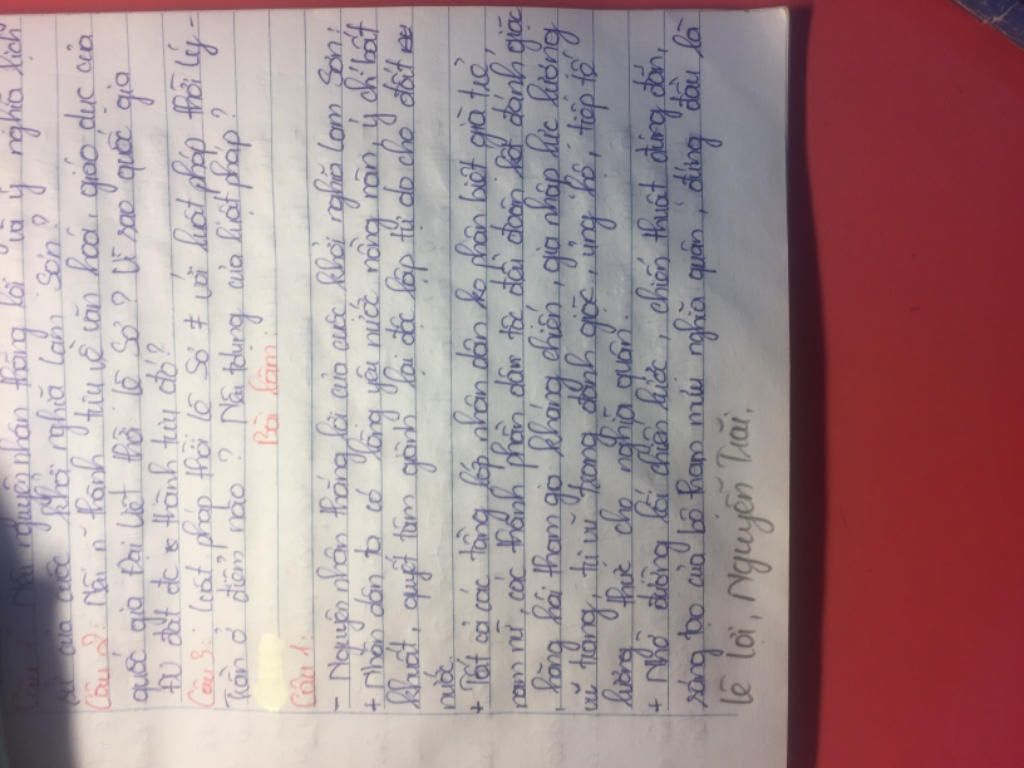 Câu 1: Nêu nguyên nhân thắng lợi và ý nghĩa lịch
sử của cuộc khởi nghĩa Lam Sơn?
Câu 2: Nêu n~ thành tựu về văn hoá, giáo dục của
quốc gia Đại Việt thời Lê Sơ? Vì sao quốc gia
ĐV đạt đc thành tựu đó?
Câu 3: Luật pháp thời Lê Sơ ≠ với luật pháp thời Lý -
Trần ở điểm nào? Nội dung của luật pháp?
Bài làm:
Câu 1:
- Nguyên nhân thắng lợi của cuộc khởi nghĩa Lam Sơn:
+ Nhân dân ta có lòng yêu nước nồng nàn, ý chí bất
khuất, quyết tâm giành lại độc lập tự do cho đất
nước
+ Tất cả các tầng lớp nhân dân ko phân biệt già trẻ,
nam nữ, các thành phần dân tộc đều đoàn kết đánh giặc
hăng hái tham gia kháng chiến, gia nhập lực lượng
vũ trang, tự vũ trang đánh giặc, ủng hộ, tiếp tế
lương thực cho nghĩa quân.
+ Nhờ đường lối chiến lược, chiến thuật đúng đắn,
sáng tạo của bộ tham mưu nghĩa quân, đứng đầu là
Lê Lợi, Nguyễn Trãi.